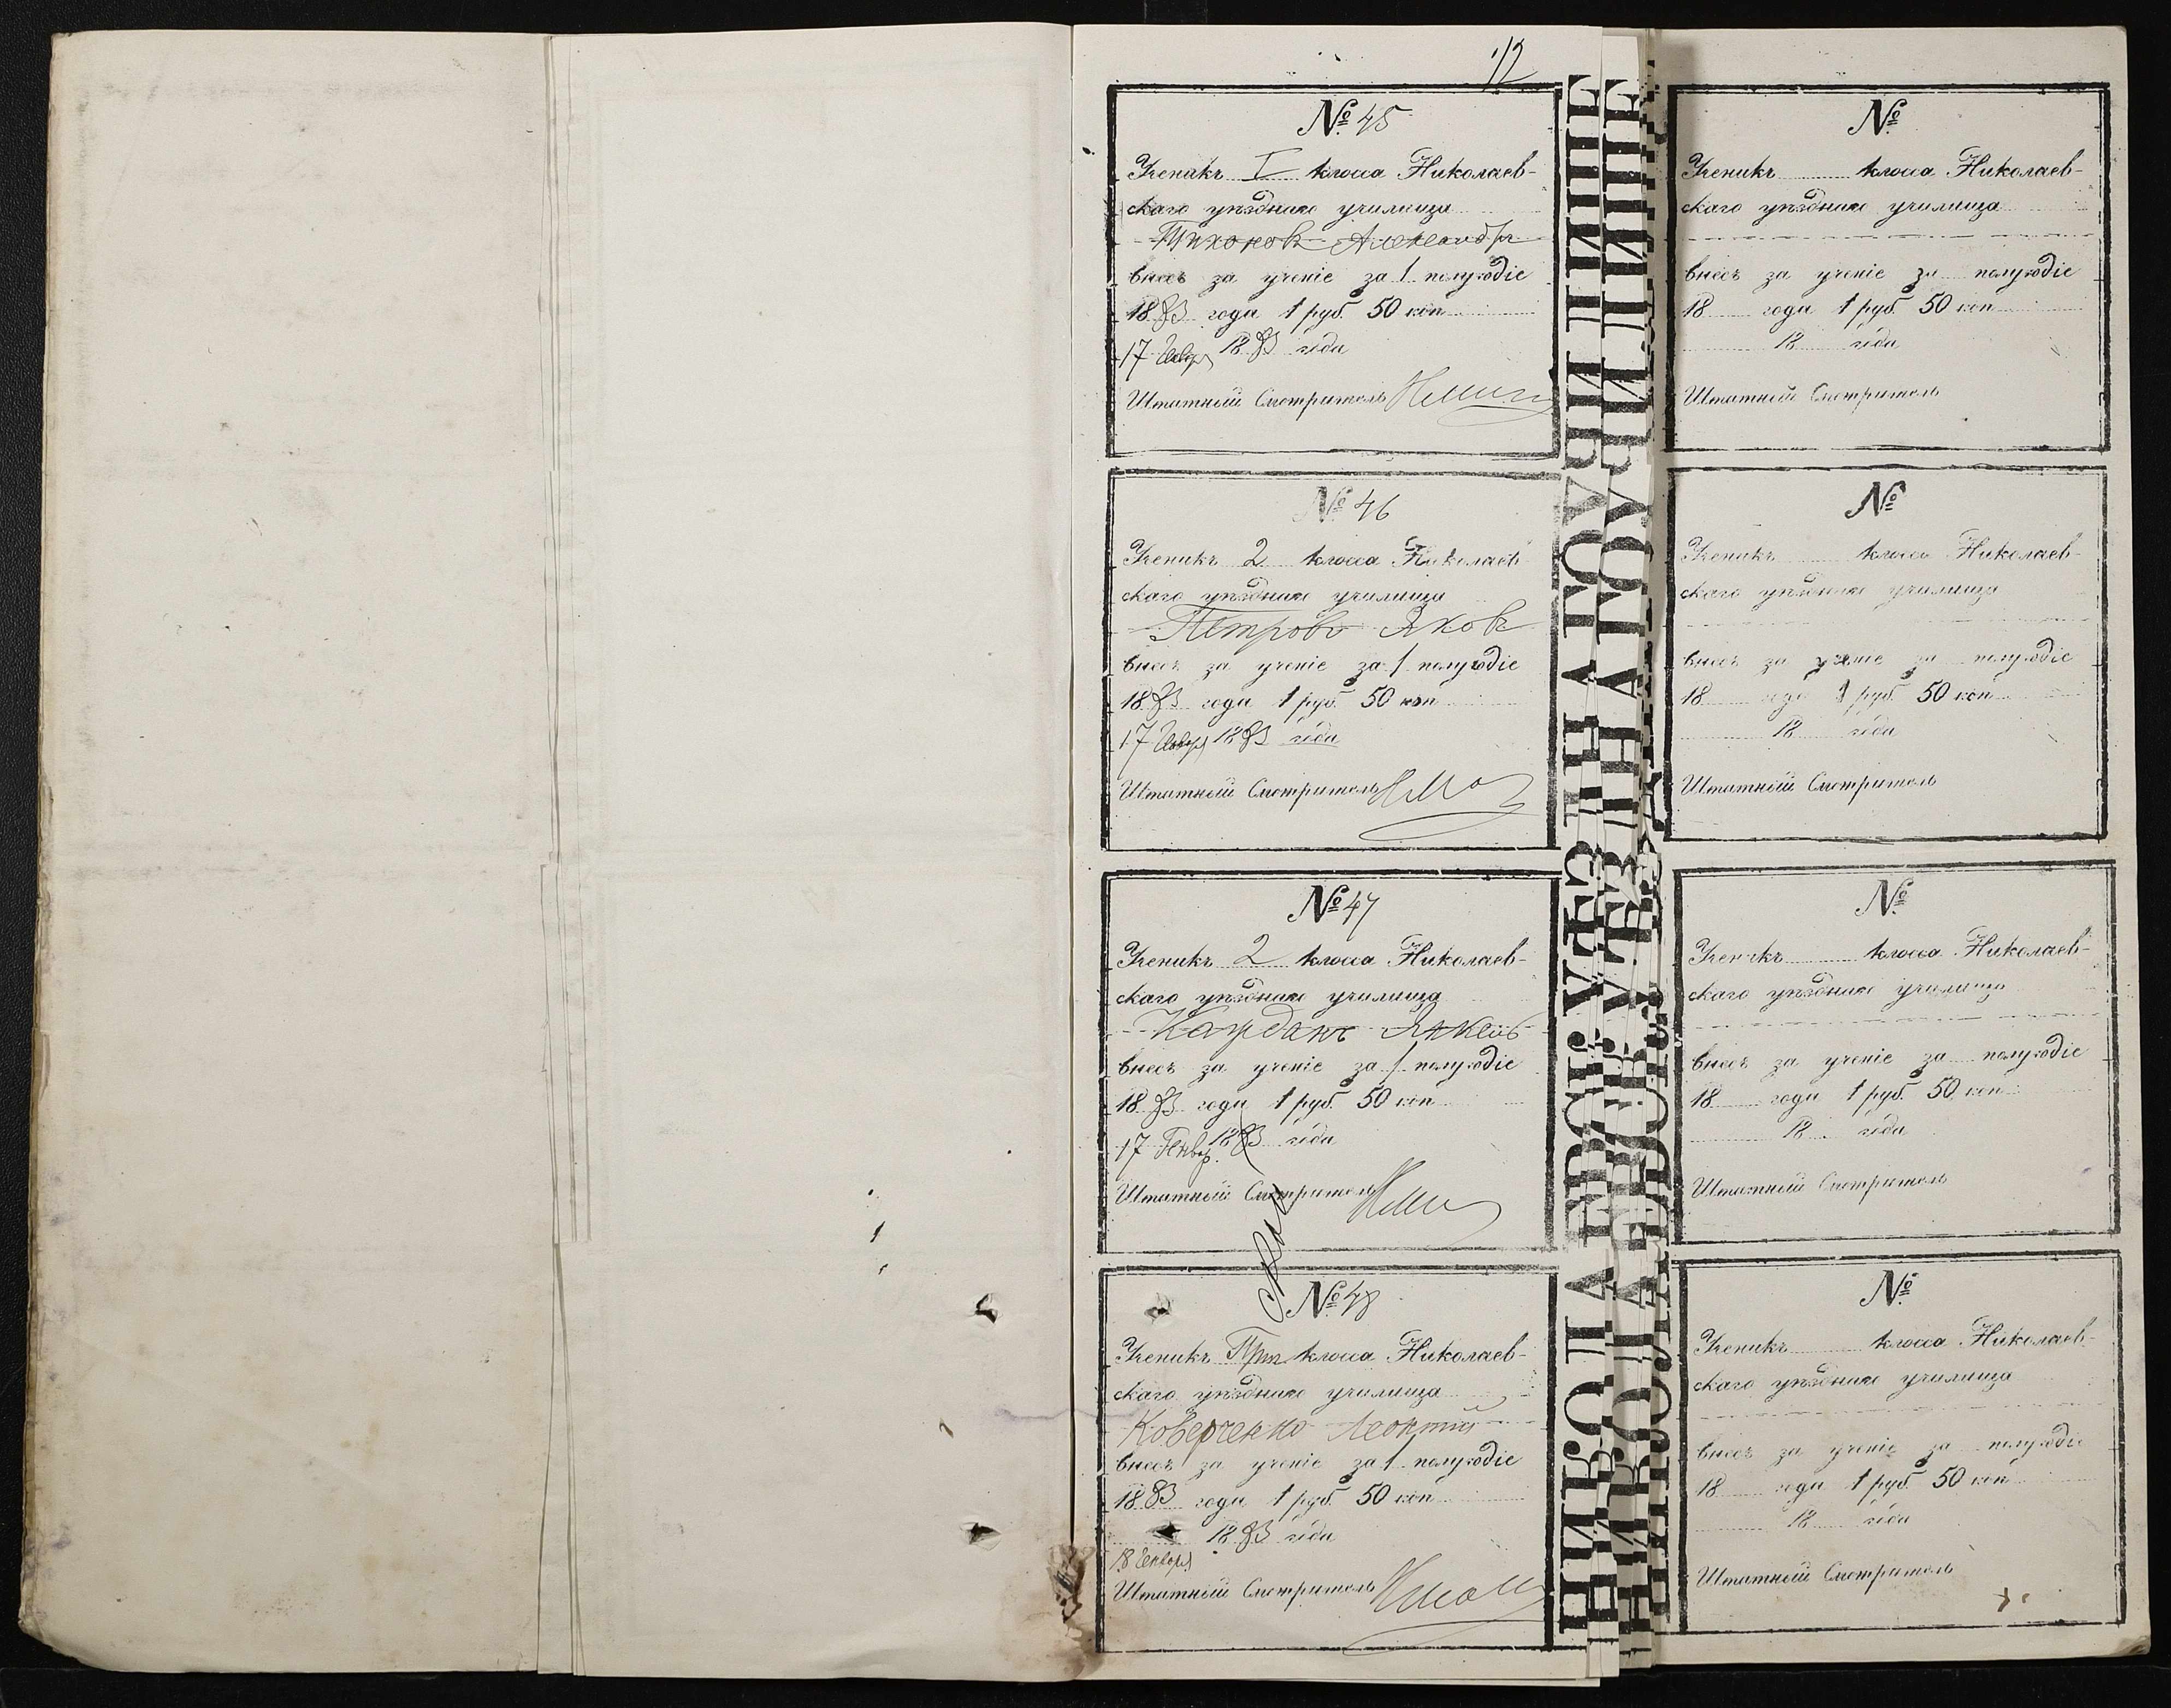 12
№ 45
Ученикъ I класса Николаев-
скаго уѣзднаго училища
Тихоновъ Александръ
внесъ за ученіе за 1 полугодіе
1883 года 1 руб. 50 коп
17 Январ 1883 года
Штатный Смотритель
№ 46
Ученикъ 2 класса Николаев-
скаго уѣзднаго училища
Петровъ Яковъ
внесъ за ученіе за 1 полугодіе
1883 года 1 руб. 50 коп
17 Январ 1883 года
Штатный Смотритель
№ 47
Ученикъ 2 класса Николаев-
скаго уѣзднаго училища
Каждань Яковъ
внесъ за ученіе за 1 полугодіе
1883 года 1 руб. 50 коп
17 Генвар. 1883 года
Штатный Смотритель
№ 48
Ученикъ Приг класса Николаев-
скаго уѣзднаго училища
Коверченко Леонтій
внесъ за ученіе за 1 полугодіе
1883 года 1 руб. 50 коп
1883 года
18 Генваря
Штатный Смотритель
НИКОЛАЕВСК: УѢЗДНАГО УЧИЛИЩЕ
№
Ученикъ класса Николаев-
скаго уѣзднаго училища
внесъ за ученіе за полугодіе
18 года 1 руб. 50 коп
18 года
Штатный Смотритель
№
Ученикъ класса Николаев-
скаго уѣзднаго училища
внесъ за ученіе за полугодіе
18 года 1 руб. 50 коп
18 года
Штатный Смотритель
№
Ученикъ класса Николаев-
скаго уѣзднаго училища
внесъ за ученіе за полугодіе
18 года 1 руб. 50 коп
18 года
Штатный Смотритель
№
Ученикъ класса Николаев-
скаго уѣзднаго училища
внесъ за ученіе за полугодіе
18 года 1 руб. 50 коп
18 года
Штатный Смотритель